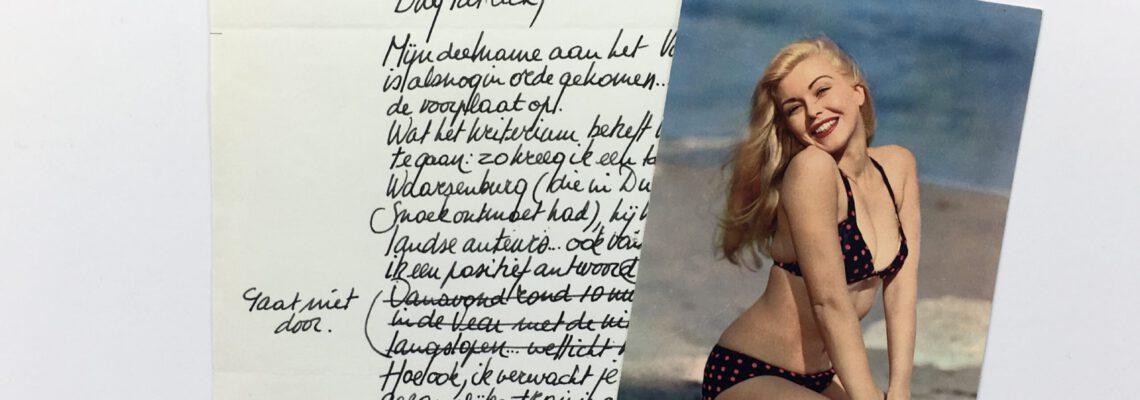 Dag Patrick,
Mijn deelname aan het
is alsnog in orde gekomen..
de voorplaat op!
Wat het kriterium betreft
te gaan: zo kreeg ik een
Waarsenburg (die in Du
Snoek ontmoet had), hij
landse auteurs... ook van
ik een positief antwoord
Vanavond rond 10 uu
in de Vear met de
langslopen... wellicht
Gaat niet
door.
Hoe ook, ik verwacht je